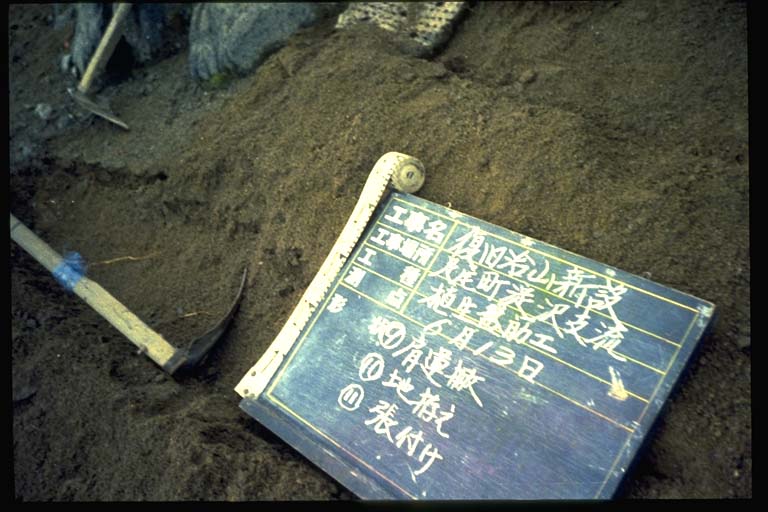 工事名 復旧治山新設
工事場所 大尾町滝沢支流
工種 植生基助工
測点 6月13日
⑨肩運搬
⑩地拵え
⑪張付け